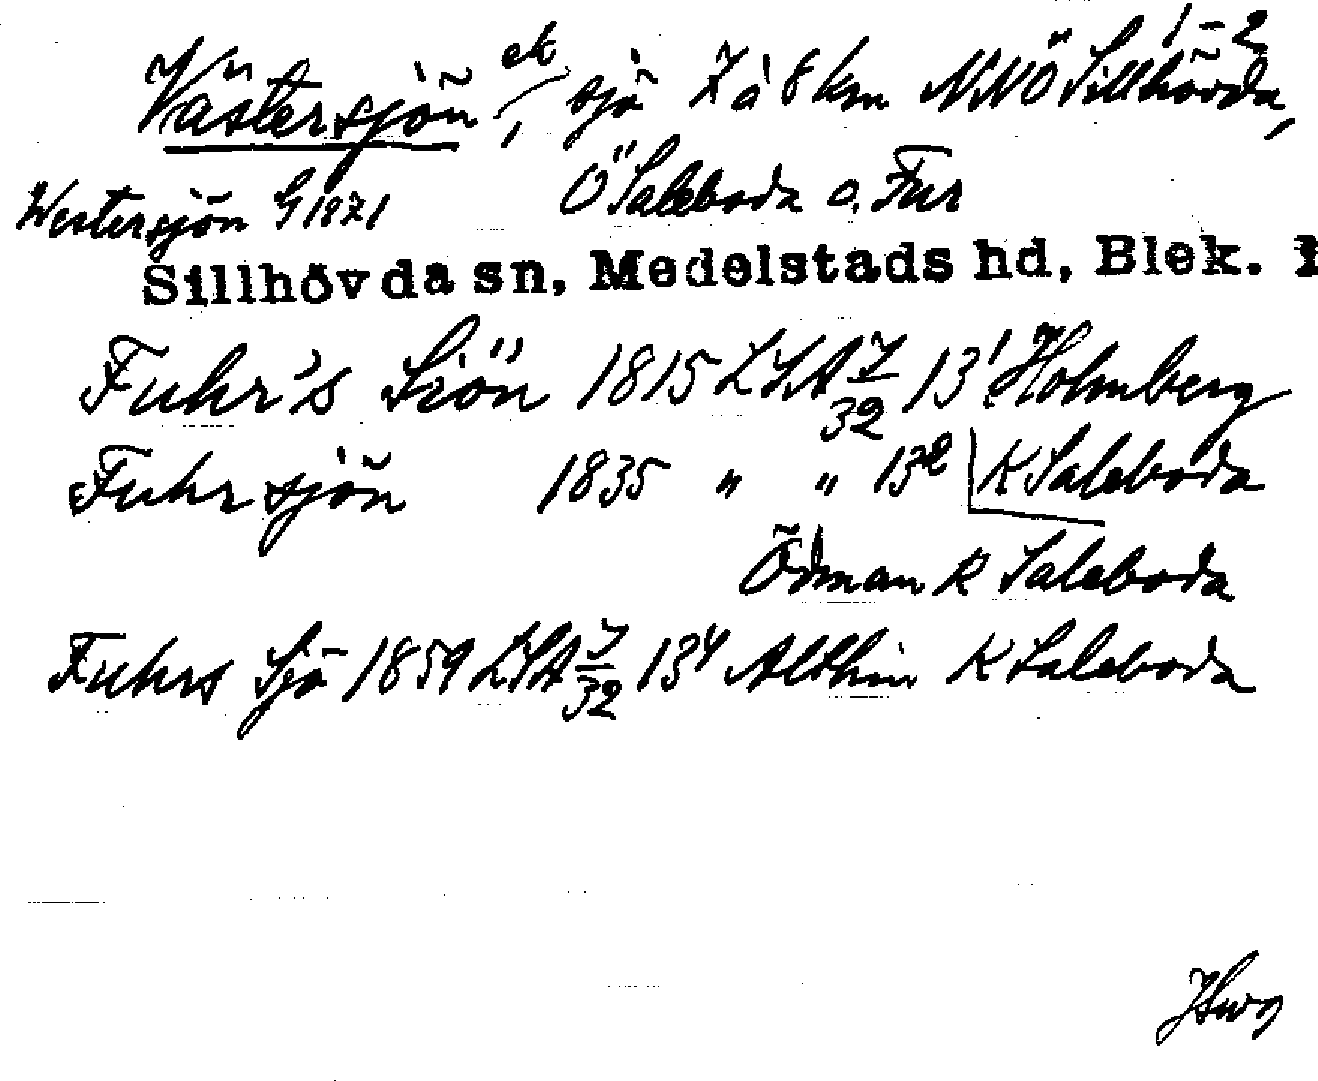 Västersjön, ek, sjö 7 à 8 km NNÖ Sillhövda, 1-2
Westersjön G 1871 Ö Saleboda o. Fur
Sillhövda sn, Medelstads hd, Blek. l
Fuhr's Siön 1815 LSA 7/32 13¹ Holmberg
Fuhrsjön 1835 " " 13² K Saleboda
Ödman K Saleboda
Fuhrs Sjö 1859 LSA 7/32 13⁴ Althin K Saleboda